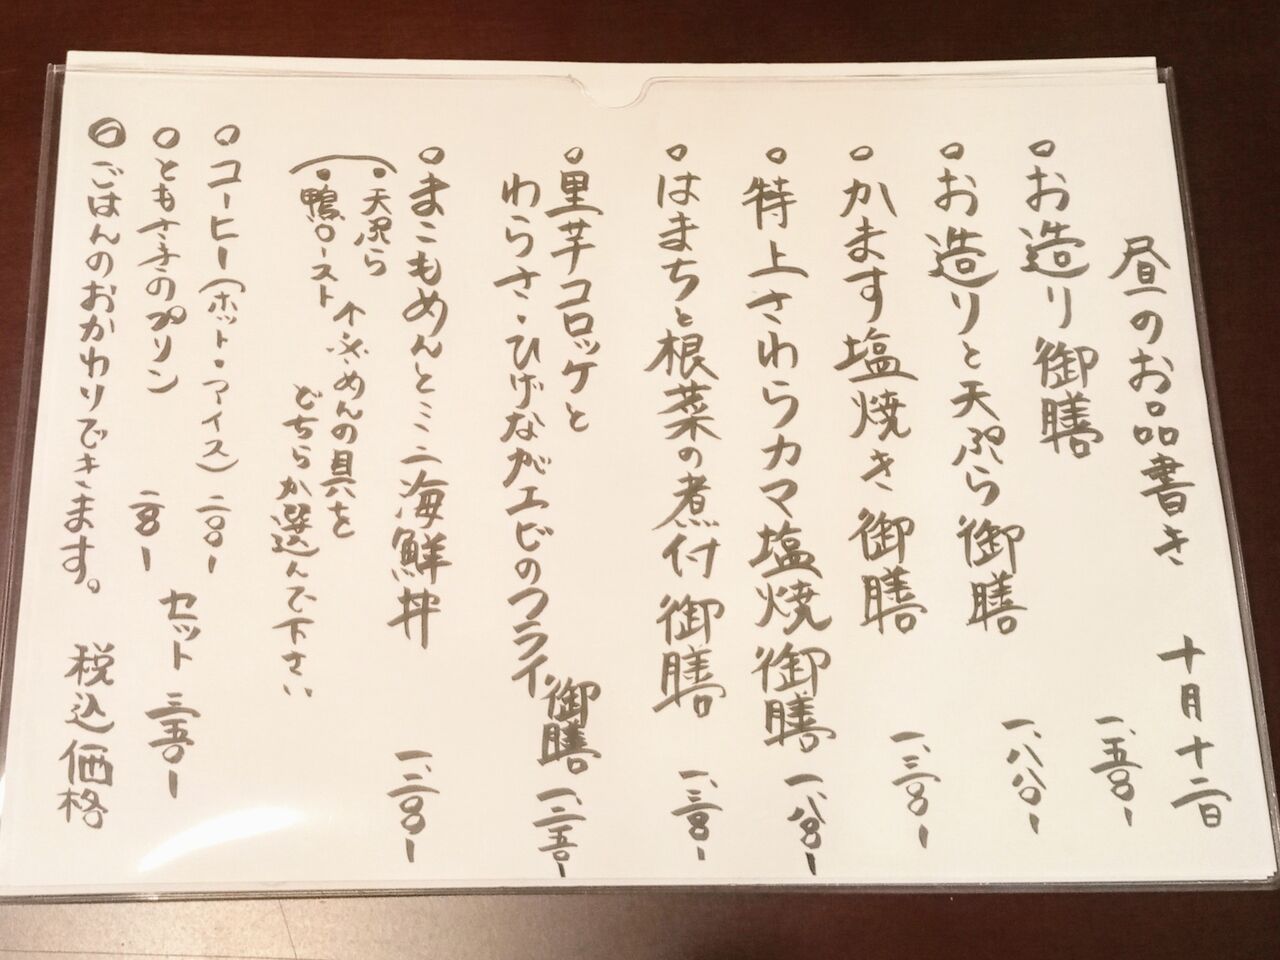 昼のお品書き 十月十二日
○お造り御膳 一、五〇〇ー
○お造りと天ぷら御膳 一、八〇〇ー
○かます塩焼き御膳 一、三〇〇ー
○特上さわらカマ塩焼御膳 一、八〇〇ー
○はまちと根菜の煮付御膳 一、三〇〇ー
○里芋コロッケと
わらさ・ひげながエビのフライ御膳 一、二五〇ー
○まこもめんとミニ海鮮丼 一、二〇〇ー
・天ぷら
・鴨ロースト
↑※めんの具を
どちらか選んで下さい
○コーヒー(ホット・アイス) 二〇〇ー
○ともさきのプリン 二〇〇ー
セット 三五〇ー
◎ごはんのおかわりできます。 税込価格